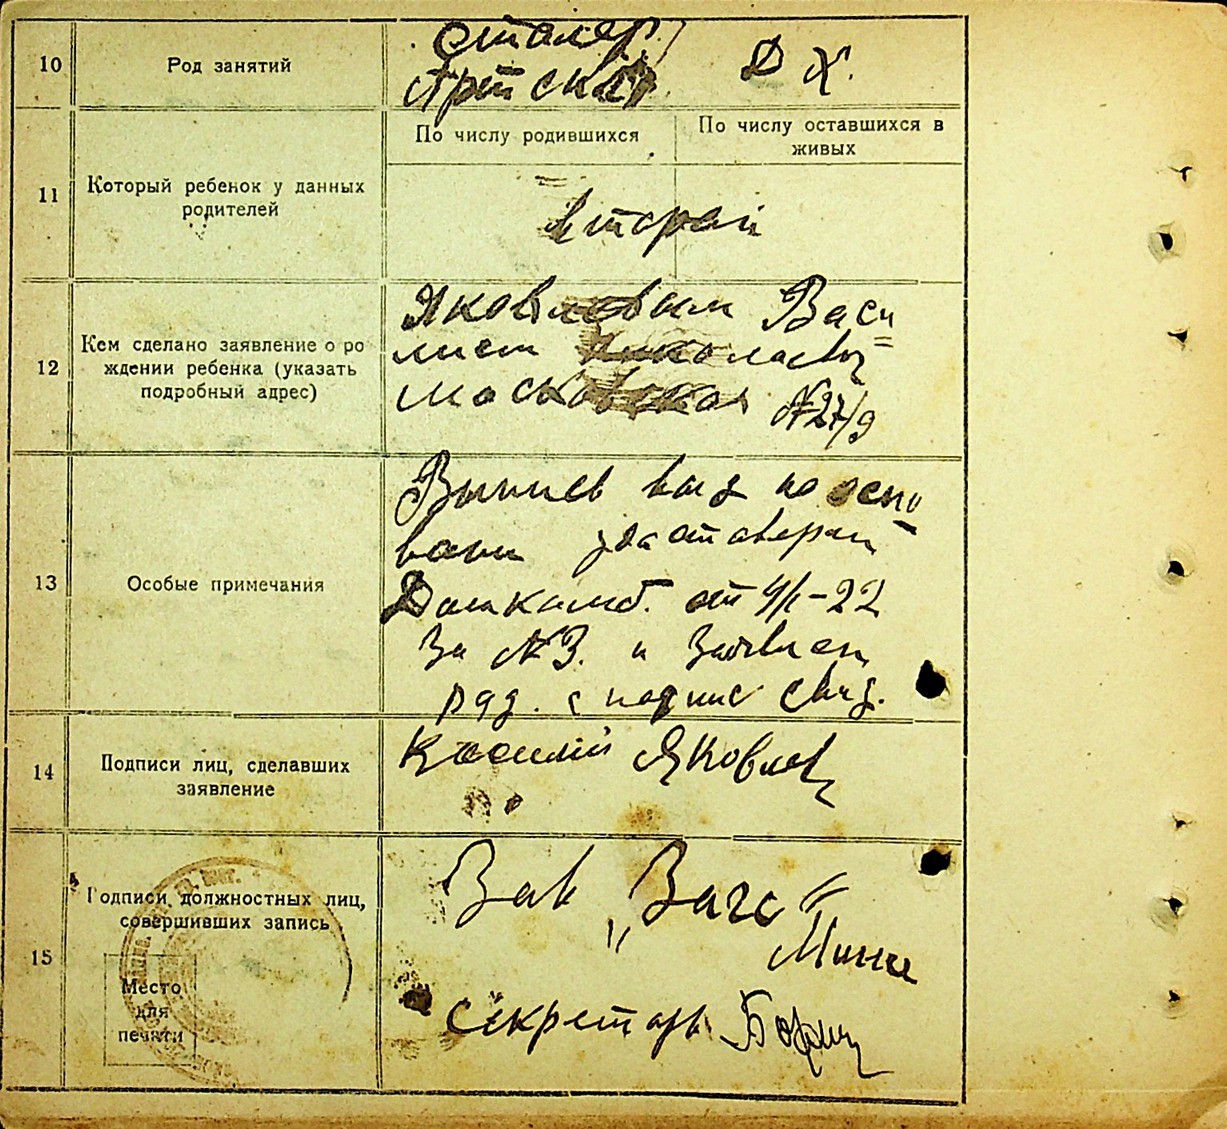 10
Род занятий
столяр
Д Х.
11
Который ребенок у данных
родителей
По числу родившихся
По числу оставшихся в
живых
второй
12
Кем сделано заявление о ро
ждении ребенка (указать
подробный адрес)
Яковлевым Васи
лием Николаевы
Московская №27/9
13
Особые примечания
выд на осно
вани
от 4/I-22
За №3. и Заявлен
род. с подпис свид.
14
Подписи лиц, сделавших
заявление
Василий Яковлев
15
Подписи должностных лиц,
совершивших запись
Место
для
печати
Зав „Загс“
секретарь